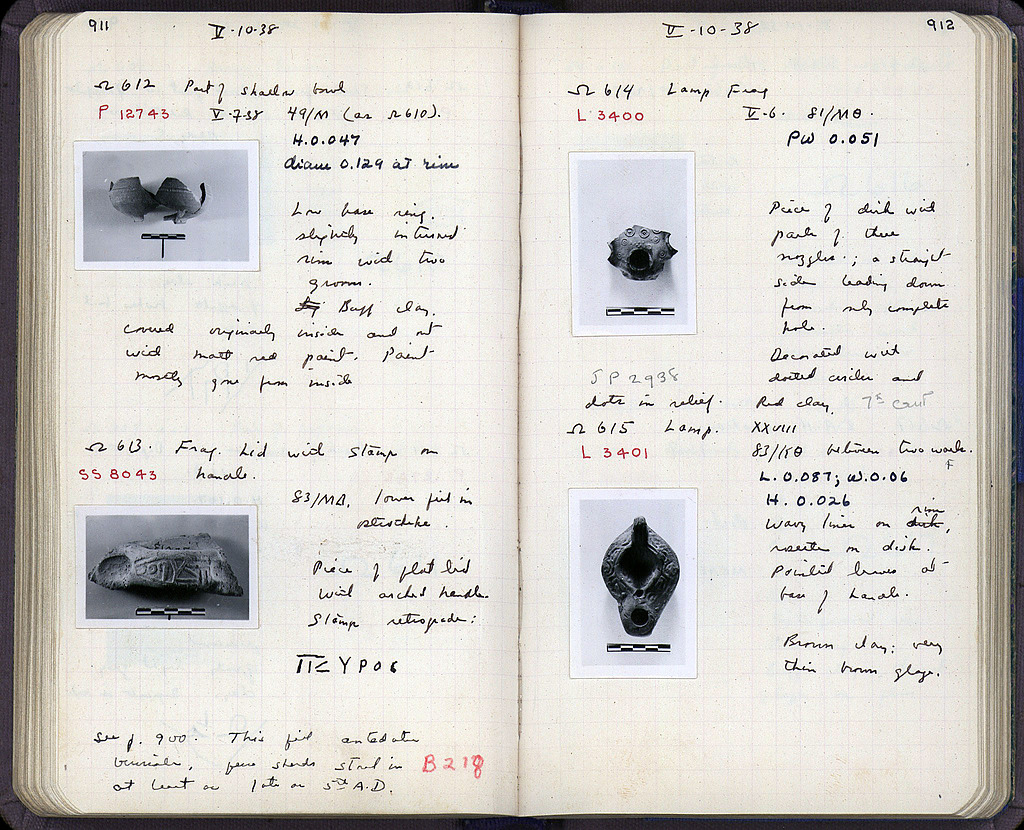 911
V-10-38
Ω 612 Part of shallow bowl
P 12743 V-7-38 49/M (as Ω610).
H. 0.047
diam 0.129 at rim
Low base ring.
slightly inturned
rim with two
grooves.
Buff clay.
covered originally inside and out
with matt red paint. Paint
mostly gone from inside
Ω 613. Frag. Lid with stamp on
SS 8043 handle.
83/ΜΔ, lower fill in
Piece of flat lid
with arched handle.
Stamp retrograde:
ΠΣΥΡΟΣ
See p. 900. This fill antedates
burials, few sherds stred in B 218
at least as late as 5th A.D.
912
V-10-38
Ω 614 Lamp Frag
L 3400 V-6. 81/ΜΘ.
PW 0.051
Piece of disk with
parts of three
nozzles; a straight
side leading down
from only complete
hole.
Decorated with
SP 2938 dotted circles and
dots in relief. Red clay. 7th cent
Ω 615 Lamp. XXVIII
L 3401 83/ΚΘ between two walls.
L. 0.087; W. 0.06
H. 0.026
Wavy lines on disk, rim
rosette on disk.
Pointed leaves at
base of handle.
Brown clay; very
thin brown glaze.